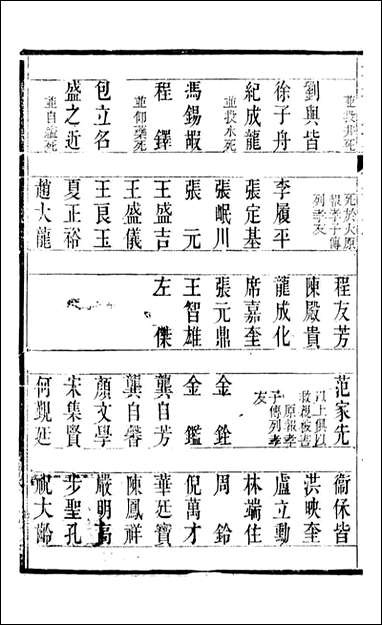 並投井死
劉與皆
徐子舟
紀成龍
並投水死
馮錫嘏
程鐸
並仰藥死
包立名
盛之近
並自縊死
死於火原
報孝子傳
列孝友
李履平
張定基
張岷川
張元
王盛吉
王盛儀
王良玉
夏正裕
趙大龍
程友芳
陳殿貴
龍成化
席嘉奎
張元鼎
王智雄
左傑
范家先
以上俱因
救親被害
原報孝
子傳列孝
友
金銓
金鑑
龔自芳
龔自馨
顏文學
宋集賢
何觀廷
衞保皆
洪映奎
盧立勳
林端佳
周鈴
倪萬才
華廷寶
陳鳳祥
嚴明高
步聖孔
祝大齡